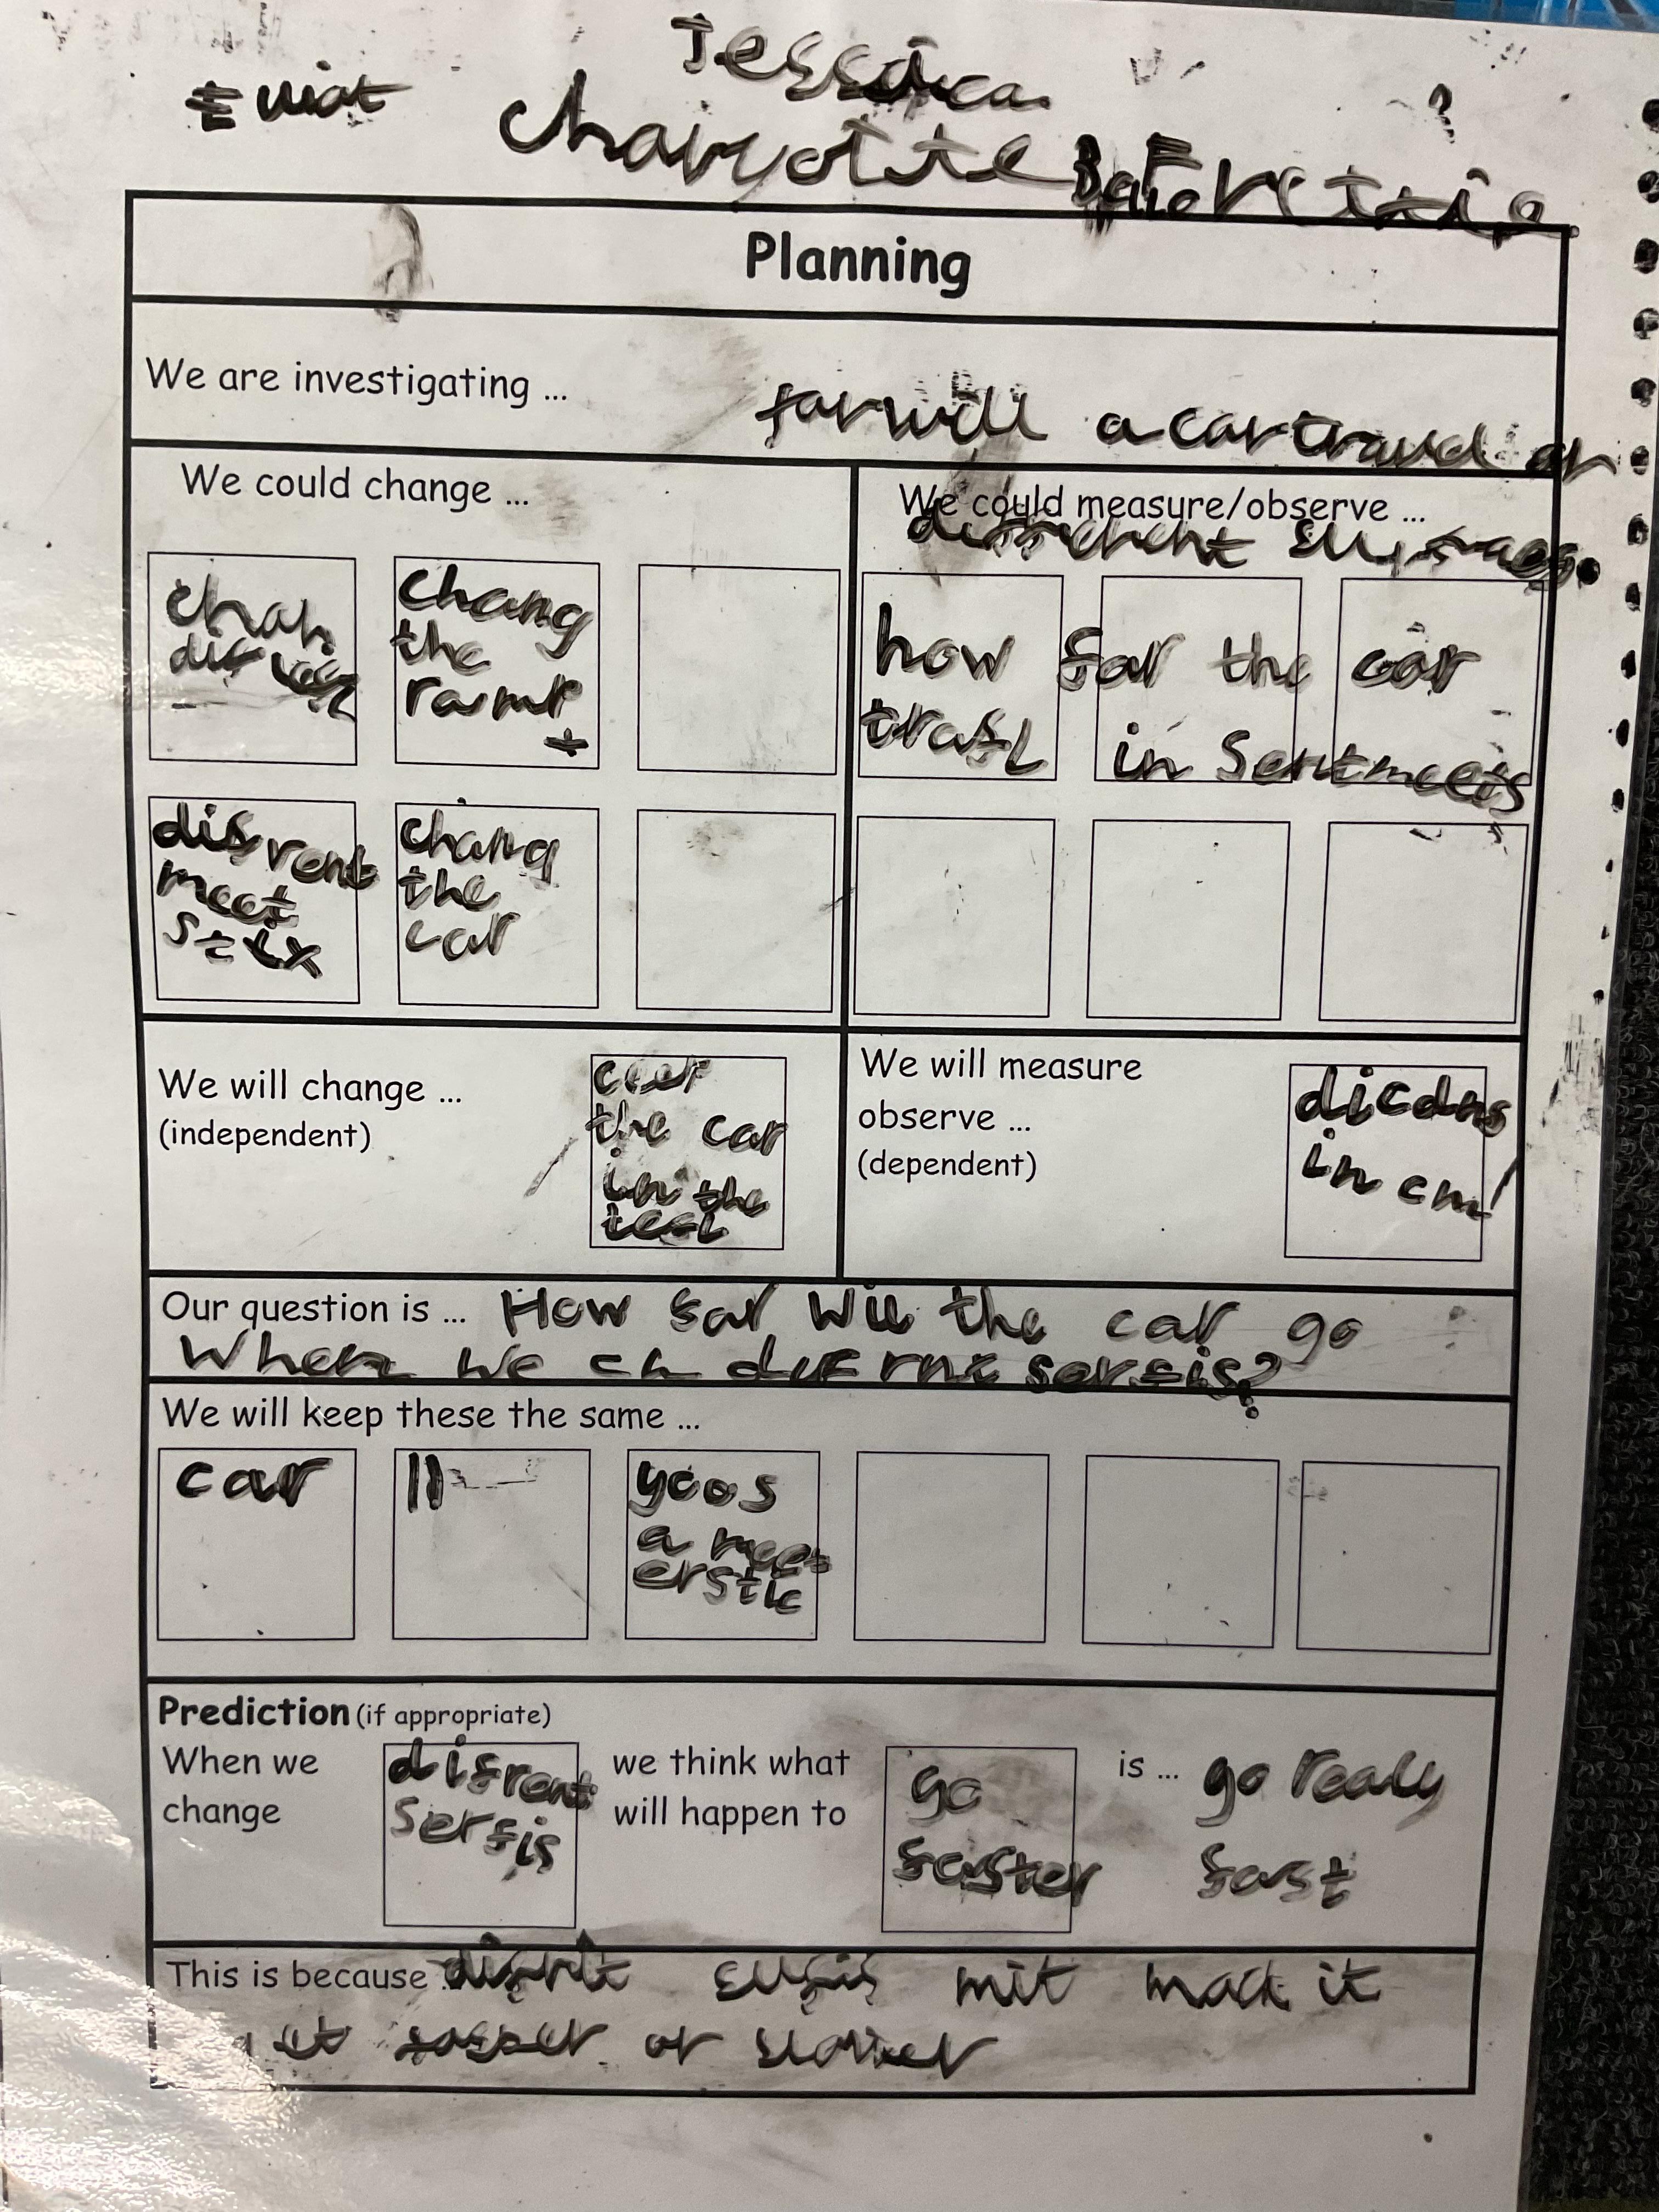 Jessica
Charlotte
Planning
We are investigating ...
far will a car travel on
We could change ...
We could measure/observe ...
diffrent
chang
the
ramp
how far the car
trafl in Sentmeets
disrent
meet
stix
chang
the
car
We will change ...
(independent)
the car
in the
test
We will measure
observe ...
(dependent)
dicdns
in cm
Our question is ... How far Will the car go
When we ch sersis?
We will keep these the same ...
car
11
yoos
a meet
erstic
Prediction (if appropriate)
When we
change
disrent
sersis
we think what
will happen to
go
faster
is ... go realy
fast
This is because ... mit mack it
or slower